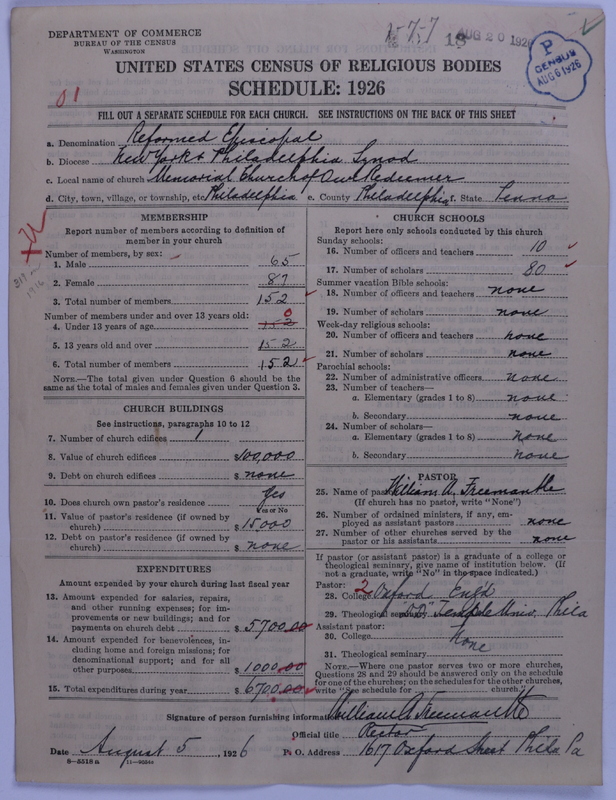 DEPARTMENT OF COMMERCE
BUREAU OF THE CENSUS
WASHINGTON
18
AUG 20 1926
P
CENSUS
AUG 6 1926
UNITED STATES CENSUS OF RELIGIOUS BODIES
SCHEDULE: 1926
01
FILL OUT A SEPARATE SCHEDULE FOR EACH CHURCH. SEE INSTRUCTIONS ON THE BACK OF THIS SHEET
a. Denomination Reformed Episcopal
b. Diocese New York & Philadelphia Synod
c. Local name of church Memorial Church of Our Redeemer
d. City, town, village, or township, etc Philadelphia e. County Philadelphia f. State Penna
MEMBERSHIP
Report number of members according to definition of
member in your church
Number of members, by sex:
1. Male 65
2. Female 87
3. Total number of members 152
Number of members under and over 13 years old:
4. Under 13 years of age 152 0
5. 13 years old and over 152
6. Total number of members 152
NOTE.—The total given under Question 6 should be the
same as the total of males and females given under Question 3.
CHURCH BUILDINGS
See instructions, paragraphs 10 to 12
7. Number of church edifices 1
8. Value of church edifices $100,000
9. Debt on church edifices $ none
10. Does church own pastor's residence yes
Yes or No
11. Value of pastor's residence (if owned by
church) $ 15000
12. Debt on pastor's residence (if owned by
church) $ none
EXPENDITURES
Amount expended by your church during last fiscal year
13. Amount expended for salaries, repairs,
and other running expenses; for im-
provements or new buildings; and for
payments on church debt $ 5700.00
14. Amount expended for benevolences, in-
cluding home and foreign missions; for
denominational support; and for all
other purposes $ 1000.00
15. Total expenditures during year $ 6700.00
CHURCH SCHOOLS
Report here only schools conducted by this church
Sunday schools:
16. Number of officers and teachers 10
17. Number of scholars 80
Summer vacation Bible schools:
18. Number of officers and teachers none
19. Number of scholars none
Week-day religious schools:
20. Number of officers and teachers none
21. Number of scholars none
Parochial schools:
22. Number of administrative officers none
23. Number of teachers—
a. Elementary (grades 1 to 8) none
b. Secondary none
24. Number of scholars—
a. Elementary (grades 1 to 8) none
b. Secondary none
PASTOR
25. Name of pastor William A. Freemantle
(If church has no pastor, write "None")
26. Number of ordained ministers, if any, em-
ployed as assistant pastors none
27. Number of other churches served by the
pastor or his assistants none
If pastor (or assistant pastor) is a graduate of a college or
theological seminary, give name of institution below. (If
not a graduate, write "No" in the space indicated.)
Pastor:
28. College 2 Oxford Eng'd
29. Theological seminary "DD" Temple Univ, Phila
Assistant pastor:
30. College None
31. Theological seminary
NOTE.—Where one pastor serves two or more churches,
Questions 28 and 29 should be answered only on the schedule
for one of the churches; on the schedules for the other churches,
write "See schedule for church"
Signature of person furnishing information William A Freemantle
Official title Rector
Date August 5, 1926
P. O. Address 1617 Oxford Street Phila Pa
8—5518 a